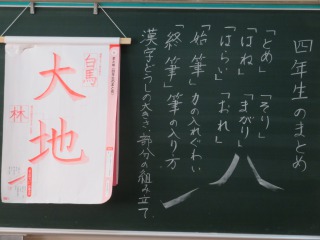 四年生のまとめ
「とめ」 「そり」
「はね」 「まがり」
「はらい」 「おれ」
「始筆」 力の入れぐあい
「終筆」 筆の入り方
漢字どうしの大きさ、部分の組み立て
大地
白馬
林